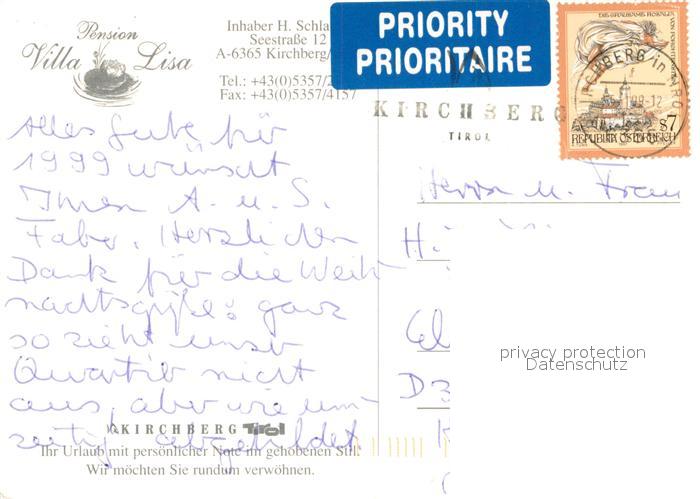 Pension
Villa Lisa
Inhaber H. Schla
Seestraße 12
A-6365 Kirchberg/
Tel.: +43(0)5357/2
Fax: +43(0)5357/4157
PRIORITY
PRIORITAIRE
KIRCHBERG
TIROL
KIRCHBERG in TIROL
S7
REPUBLIK ÖSTERREICH
Alles Gute für
1999 wünscht
Ihnen A. u. S.
Faber. Herzlichen
Dank für die Weih
nachtsgrüße: ganz
so sieht unser
Quartier nicht
aus, aber wie um-
seitig abgebildet
Herrn u. Frau
H.
D3
privacy protection
Datenschutz
KIRCHBERG Tirol
Ihr Urlaub mit persönlicher Note im gehobenen Stil.
Wir möchten Sie rundum verwöhnen.